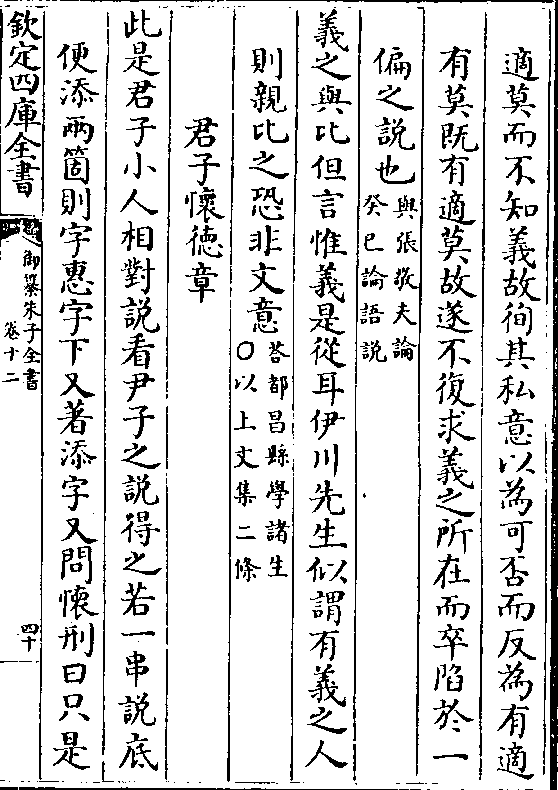 適莫而不知義故徇其私意以為可否而反為有適
有莫既有適莫故遂不復求義之所在而卒陷於一
偏之說也與張敬夫論
癸巳論語說
義之與比但言惟義是從耳伊川先生似謂有義之人
則親比之恐非文意荅都昌縣學諸生
○以上文集二條
君子懷德章
此是君子小人相對說看尹子之說得之若一串說底
便添兩箇則字惠字下又著添字又問懷刑曰只是
欽定四庫全書
御纂朱子全書
卷十二
四十